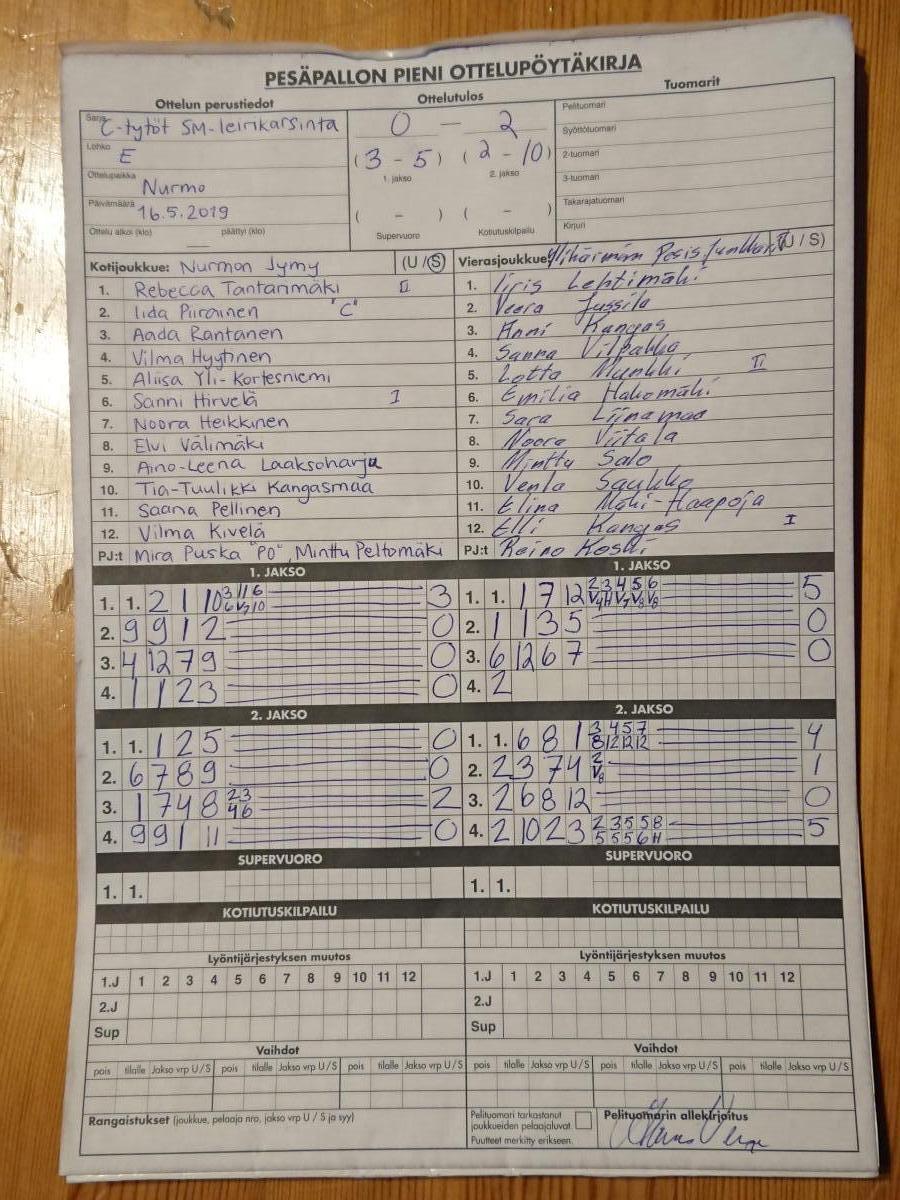 PESÄPALLON PIENI OTTELUPÖYTÄKIRJA
Ottelun perustiedot
Ottelutulos
Tuomarit
Sarja C-tytöt SM-leirikarsinta
Lohko E
Ottelupaikka Nurmo
Päivämäärä 16.5.2019
Ottelu alkoi (klo) päättyi (klo)
0 — 2
(3 - 5) (2 - 10)
1. jakso 2. jakso
( - ) ( - )
Supervuoro Kotiutuskilpailu
Pelituomari
Syöttötuomari
2-tuomari
3-tuomari
Takarajatuomari
Kirjuri
Kotijoukkue: Nurmon Jymy (U / S)
1. Rebecca Tantanmäki II
2. Iida Piiroinen "C"
3. Aada Rantanen
4. Vilma Hyytinen
5. Aliisa Yli-Kortesniemi
6. Sanni Hirvelä I
7. Noora Heikkinen
8. Elvi Välimäki
9. Aino-Leena Laaksoharju
10. Tia-Tuulikki Kangasmaa
11. Saana Pellinen
12. Vilma Kivelä
PJ:t Mira Puska "PO", Minttu Peltomäki
Vierasjoukkue: Ylihärmän Pesis Junkkarit (U / S)
1. Iiris Lehtimäki
2. Veera Jussila
3. Anni Kangas
4. Sanna Vilpakka
5. Lotta Munkki II
6. Emilia Hakomäki
7. Sara Liinamaa
8. Noora Viitala
9. Minttu Salo
10. Venla Saukko
11. Elina Mäki-Haapoja
12. Elli Kangas I
PJ:t Reino Koski
1. JAKSO
1. 1. 2 1 10 3 11 6 3
6 V7 10
2. 9 9 1 2 0
3. 4 12 7 9 0
4. 1 1 2 3 0
1. JAKSO
1. 1. 1 7 12 2 3 4 5 6 5
V4 H V7 V8 V8
2. 1 1 3 5 0
3. 6 12 6 7 0
4. 2
2. JAKSO
1. 1. 1 2 5 0
2. 6 7 8 9 0
3. 1 7 4 8 2 3 2
4 6
4. 9 9 1 11 0
2. JAKSO
1. 1. 6 8 1 3 4 5 7 4
8 12 12 12
2. 2 3 7 4 2 1
V8
3. 2 6 8 12 0
4. 2 10 2 3 2 3 5 5 8 5
5 5 5 6 H
SUPERVUORO
1. 1.
SUPERVUORO
1. 1.
KOTIUTUSKILPAILU
KOTIUTUSKILPAILU
Lyöntijärjestyksen muutos
1.J 1 2 3 4 5 6 7 8 9 10 11 12
2.J
Sup
Lyöntijärjestyksen muutos
1.J 1 2 3 4 5 6 7 8 9 10 11 12
2.J
Sup
Vaihdot
pois tilalle Jakso vrp U/S pois tilalle Jakso vrp U/S pois tilalle Jakso vrp U/S
Vaihdot
pois tilalle Jakso vrp U/S pois tilalle Jakso vrp U/S pois tilalle Jakso vrp U/S
Rangaistukset (joukkue, pelaaja nro, jakso vrp U / S ja syy)
Pelituomari tarkastanut
joukkueiden pelaajaluvat.
Puutteet merkitty erikseen.
Pelituomarin allekirjoitus